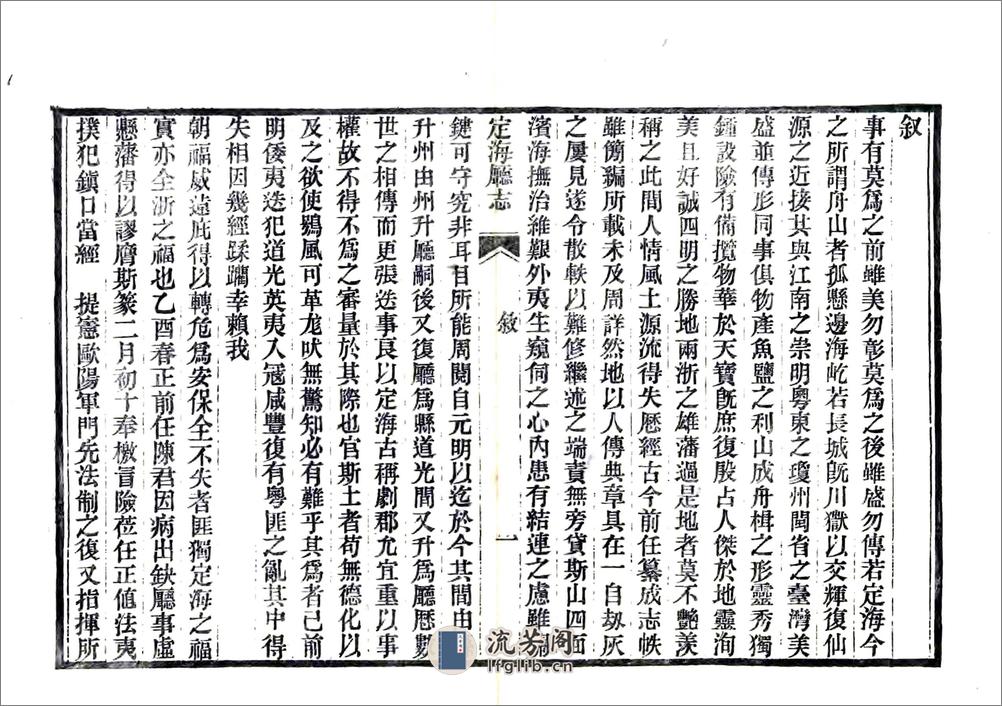 叙
事有莫爲之前雖美勿彰莫爲之後雖盛勿傳若定海今
之所謂舟山者孤懸邊海屹若長城旣川嶽以交輝復仙
源之近接其與江南之崇明粵東之瓊州閩省之臺灣美
盛並傳形同事俱物產魚鹽之利山成舟楫之形靈秀獨
鍾設險有備攬物華於天寶旣庶復殷占人傑於地靈洵
美且好誠四明之勝地兩浙之雄藩過是地者莫不艷羨
稱之此間人情風土源流得失歷經古今前任纂成志帙
雖簡編所載未及周詳然地以人傳典章具在一自刼灰
之屢見遂令散軼以難修繼述之端責無旁貸斯山四面
濱海撫治維艱外夷生窺伺之心內患有結連之慮雖
定海廳志
叙
一
鍵可守究非耳目所能周閱自元明以迄於今其間由
升州由州升廳嗣後又復廳爲縣道光間又升爲廳歷數
世之相傳而更張迭事良以定海古稱劇郡尤宜重以事
權故不得不爲之審量於其際也官斯土者苟無德化以
及之欲使鷄風可革尨吠無驚知必有難乎其爲者已前
明倭夷迭犯道光英夷入冦咸豐復有粵匪之亂其中得
失相因幾經蹂躪幸賴我
朝福威遠庇得以轉危爲安保全不失者匪獨定海之福
實亦全浙之福也乙酉春正前任陳君因病出缺廳事虛
懸藩得以謬膺斯篆二月初十奉檄冒險莅任正值法夷
撲犯鎭口當經 提憲歐陽軍門先法制之復又指揮所
流芳阁
lfglib.cn